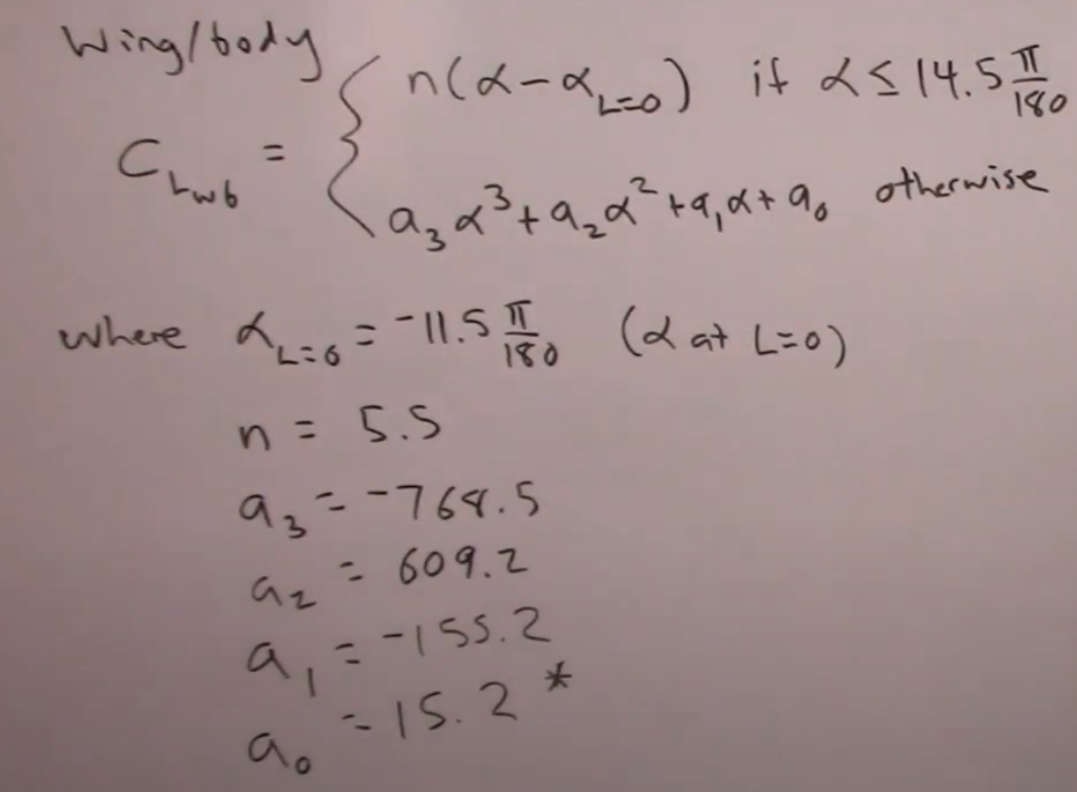 Wing/body
C_{L_{wb}} = { n(α-α_{L=0}) if α ≤ 14.5 π/180
a_3 α^3 + a_2 α^2 + a_1 α + a_0 otherwise
where α_{L=0} = -11.5 π/180 (α at L=0)
n = 5.5
a_3 = -768.5
a_2 = 609.2
a_1 = -155.2
a_0 = 15.2 *